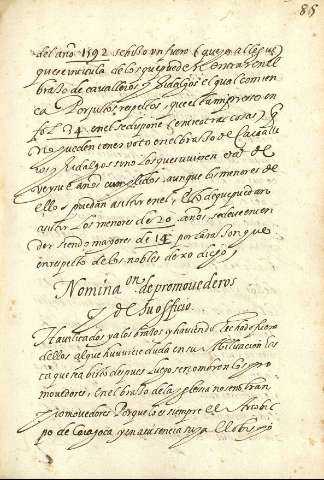 85
del año 1592 se hiço un fuero (que yo alegue)
que se intitula de los que pueden entrar en el
braço de cavalleros y hidalgos el qual comien
ça Por justos respectos, que esta impresso en
fol. 74 en el se dispone (entre otras cosas) q
no pueden tener voto en el braço de Cavalle
ros y hidalgos sino los que tuvieren edad de
veynte años cumplidos, aunque los menores de
ellos puedan asistir en el, y esto de que puedan
asistir Los menores de 20 años, se deve enten
der siendo mayores de 14 por la raçon que
en respecto de los nobles dexo dicho
Nomina on de promovederos
y de su officio
Havilitados ya los braços y haviendo hechado fuera
dellos al que huviere duda en su havilitacion las
ta que ha visto despues Luego se nombran los pro
movedores, en el braço de la yglesia no se nombran
promovedores Porque lo es siempre el Arçobis
po de Caragoça y en su ausencia suya el obispo